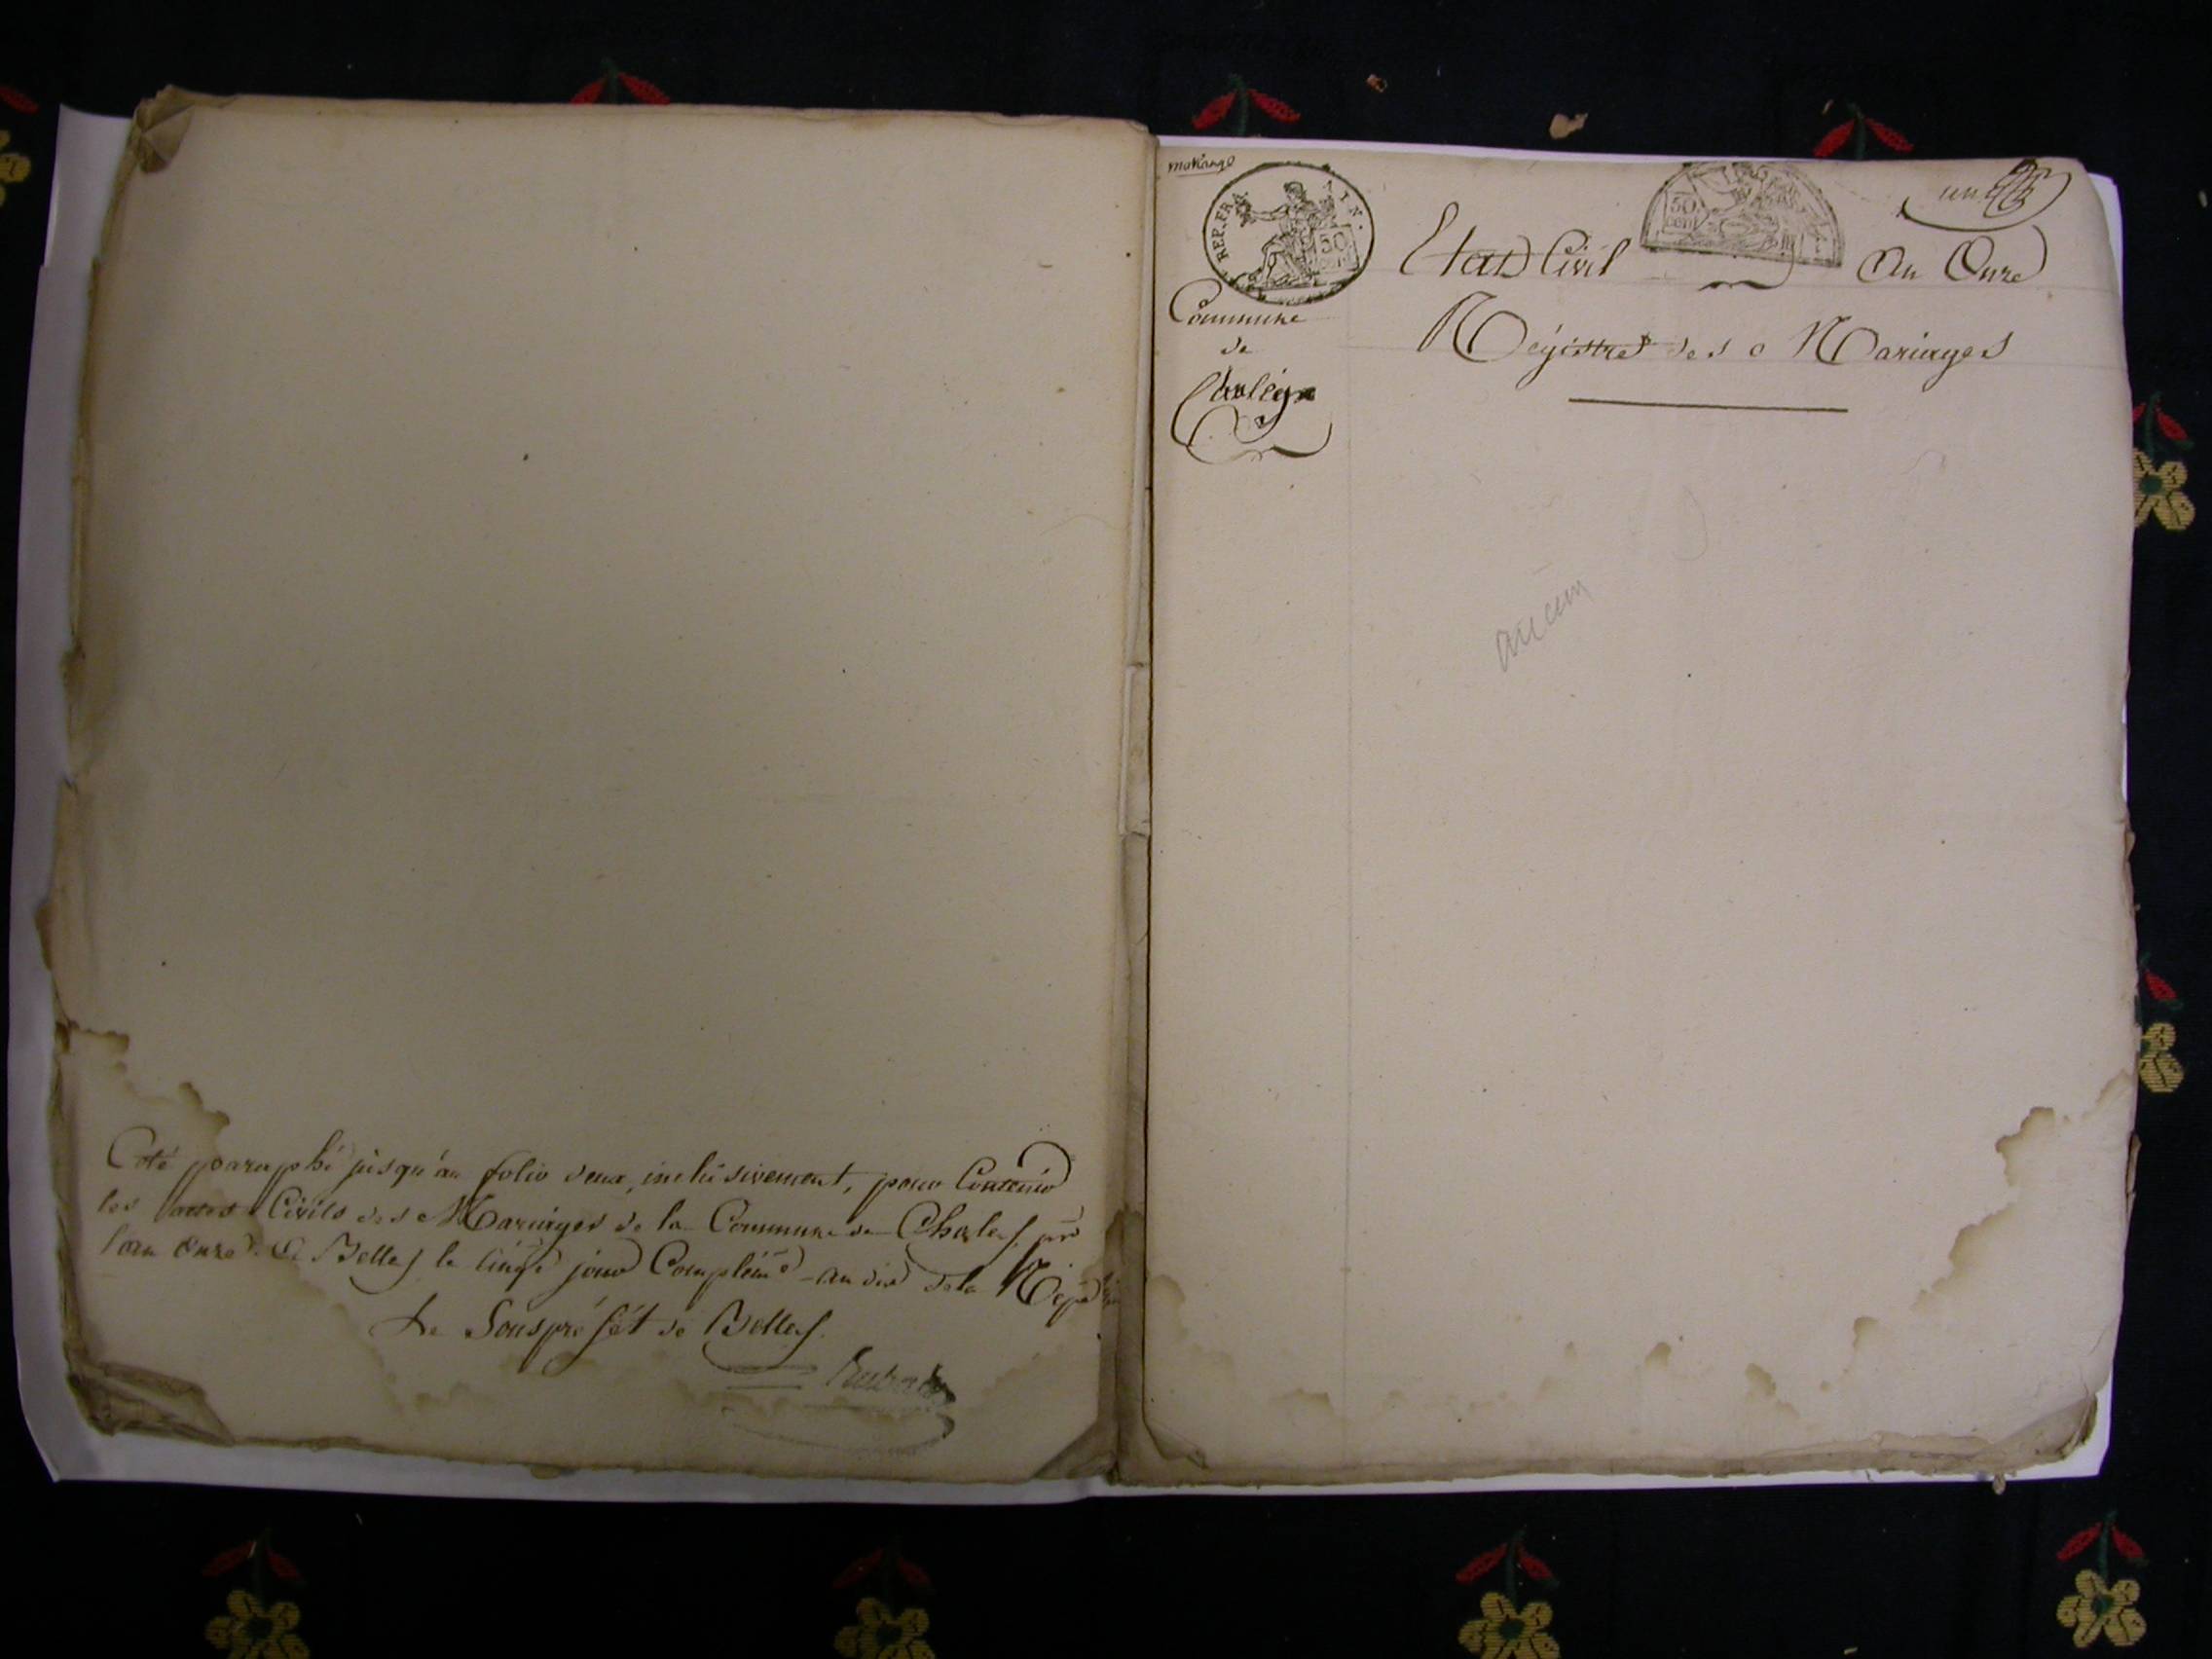 Coté paraphé jusqu'au folio deux, inclusivement, pour Contenir
les actes Civils des Mariages de la Commune de Chaley pr
l'an Onze. A Belley le cinqe jour Complémre an dix de la Répu
Le Souspréfét de Belley
mariage
REP. FRA
AIN.
50
50
cent
un
Etat Civil An Onze
Régistre des Mariages
Commune
de
aucun